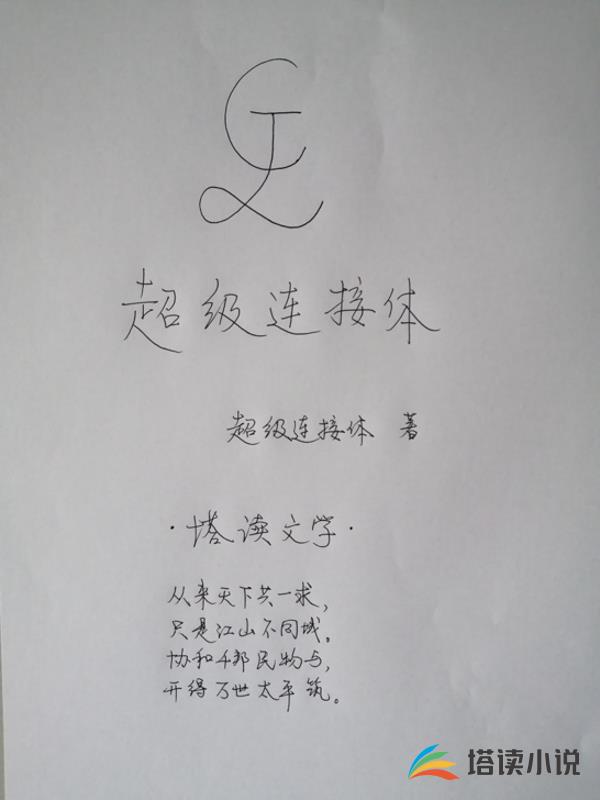 超级连接体
超级连接体 著
·塔读文学·
从来天下共一求，
只是江山不同域。
协和千邦民物与，
开得万世太平筑。
塔读小说